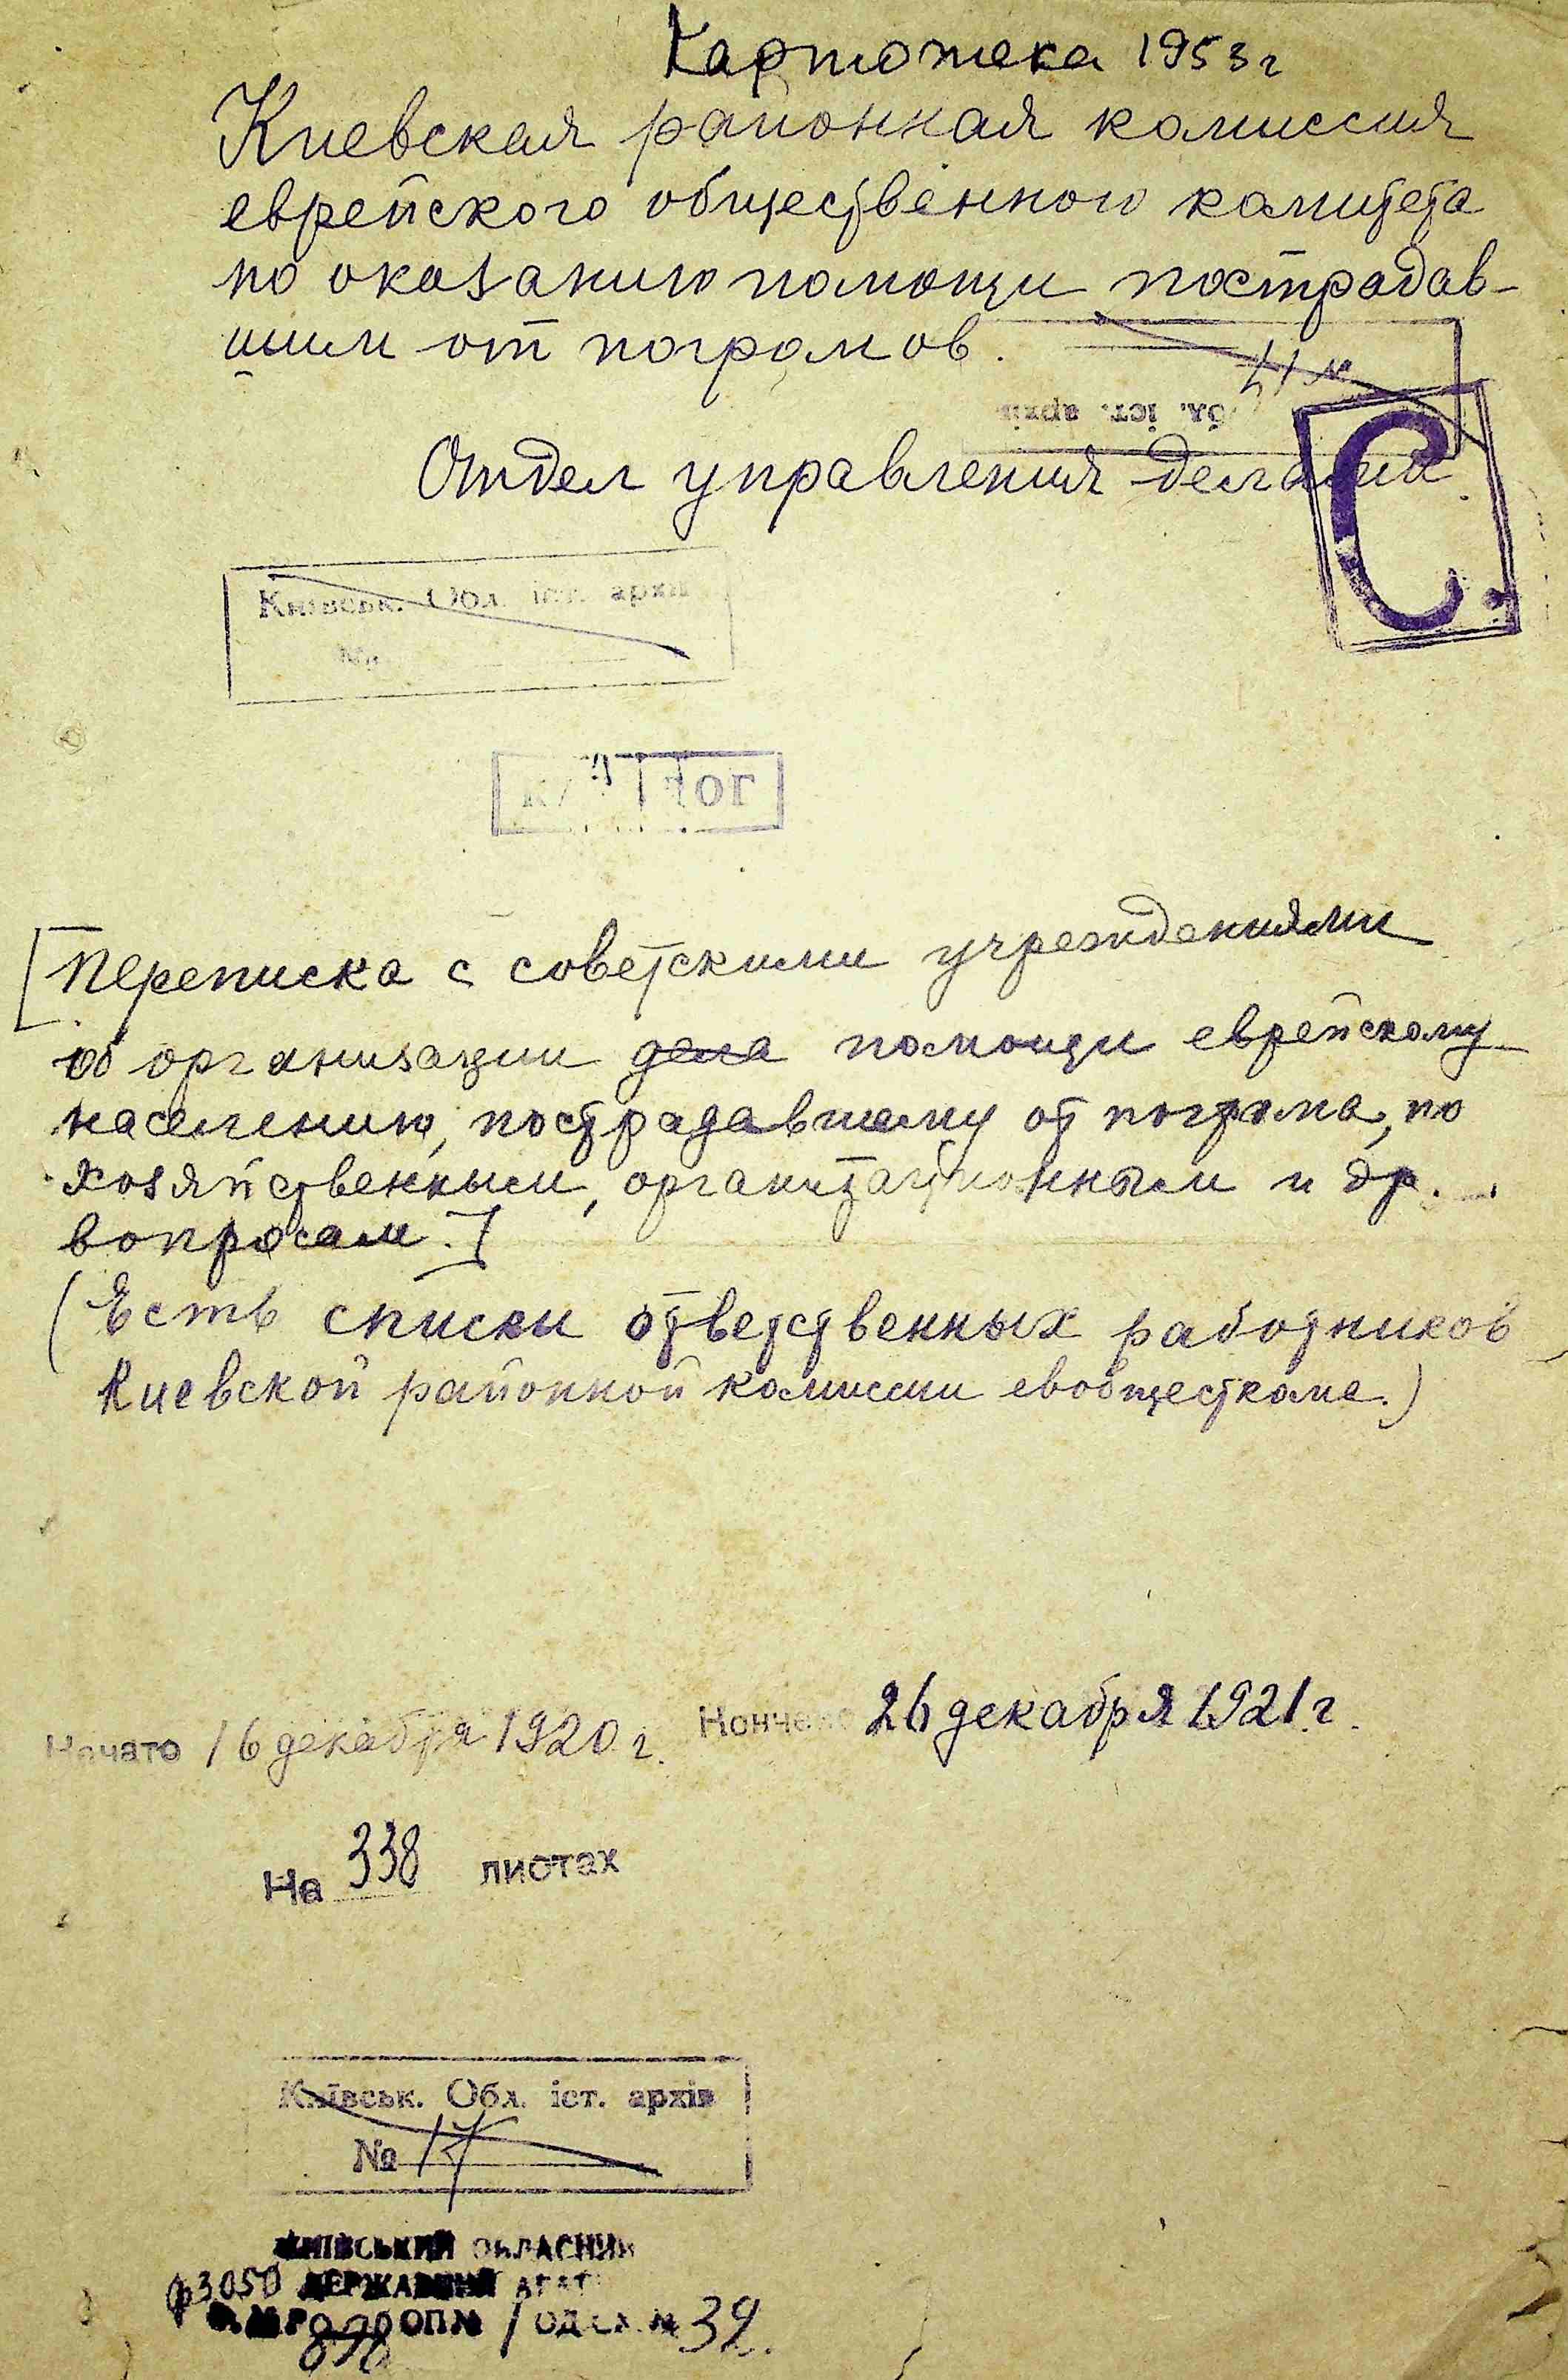 Картотека 1953 г
Киевская районная комиссия
еврейского общественного комитета
по оказанию помощи пострадав-
шим от погромов.
Обл. іст. архів
Отдел управления делами.
С.
Київськ. Обл. іст. архів
№
[Переписка с советскими учреждениями
об организации дела помощи еврейскому
населению, пострадавшему от погрома, по
хозяйственным, организационным и др.
вопросам.]
(Есть списки ответственных работников
Киевской районной комиссии евобщесткома.)
Начато 16 декабря 1920 г. Кончено 26 декабря 1921 г.
На 338 листах
Київськ. Обл. іст. архів
№ 17
КИЇВСЬКИЙ ОБЛАСНИЙ
ф3050 ДЕРЖАВНИЙ
898 ОП.№ 1 ОД.СХ.№ 39.